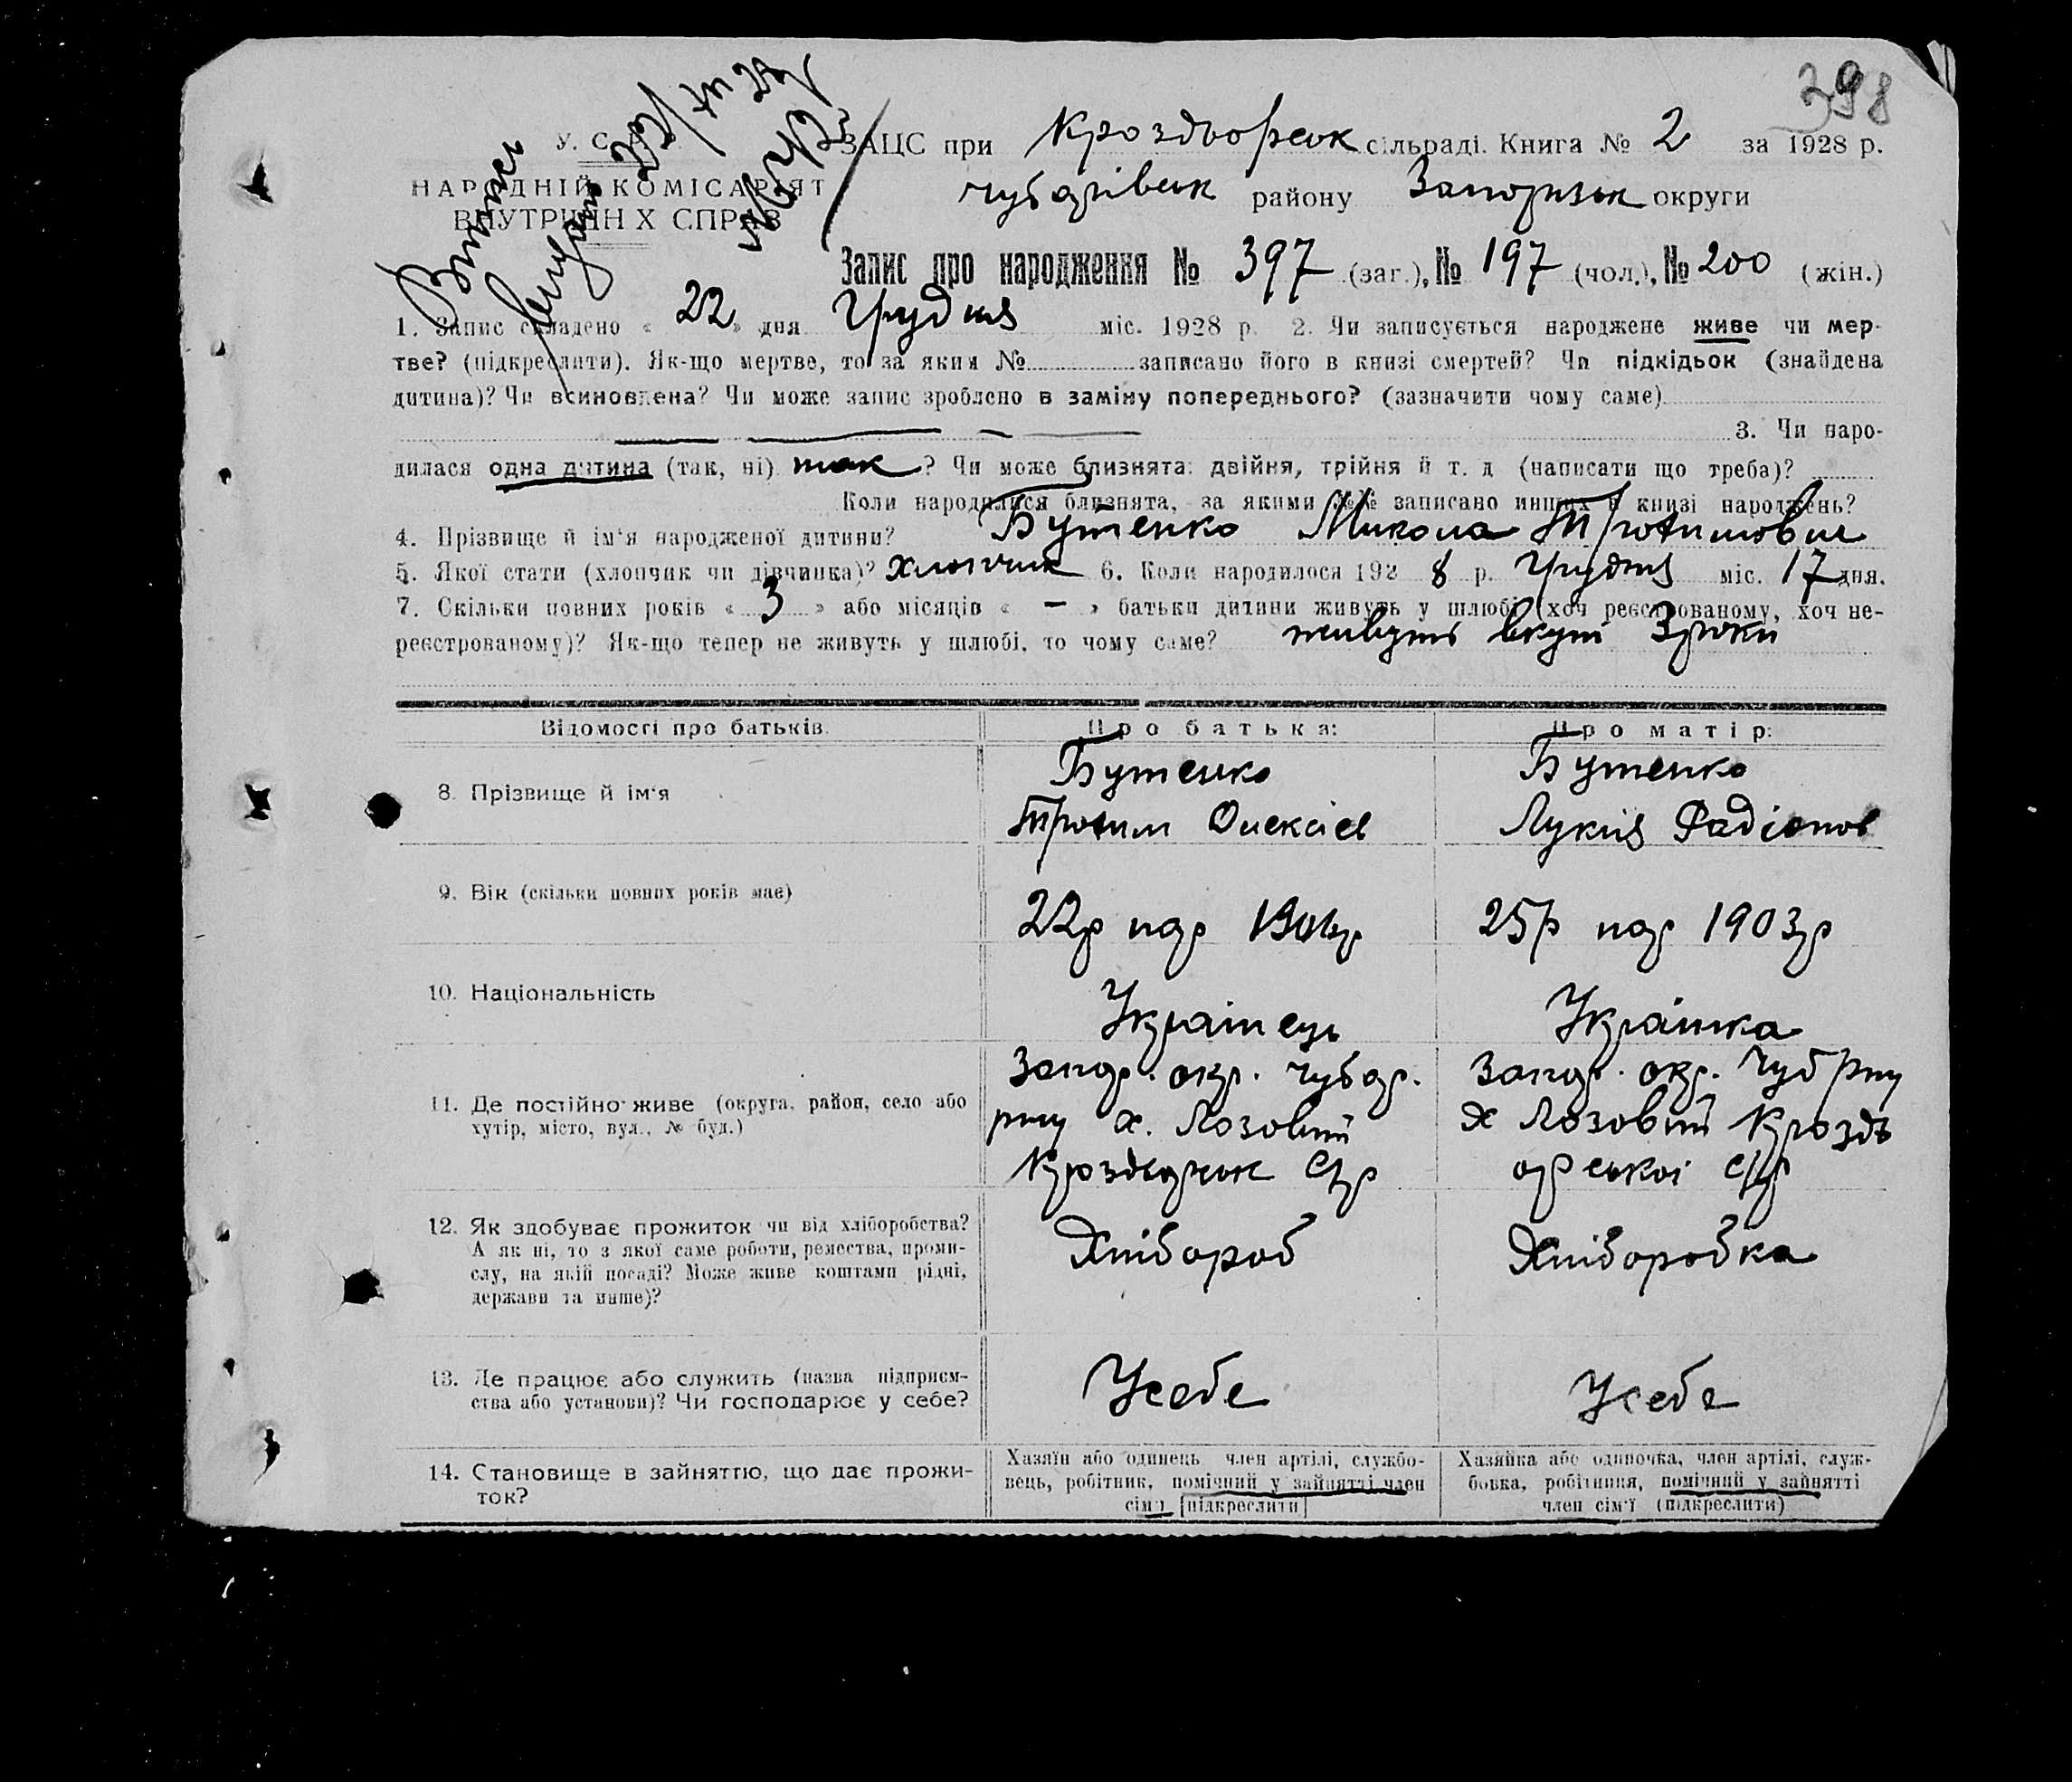 398
У. С. Р. Р. ЗАЦС при Кроздворськ сільраді. Книга № 2 за 1928 р.
НАРОДНІЙ КОМІСАРІЯТ
ВНУТРІШНІХ СПРАВ
Чубарівськ району Запоризьк округи
Запис про народження № 397 (заг.), № 197 (чол.), № 200 (жін.)
1. Запис складено « 22 » дня Грудня міс. 1928 р. 2. Чи записується народжене живе чи мер-
тве? (підкреслити). Як-що мертве, то за яким № записано його в книзі смертей? Чи підкідьок (знайдена
дитина)? Чи всиновлена? Чи може запис зроблено в заміну попереднього? (зазначити чому саме)
3. Чи наро-
дилася одна дитина (так, ні) так ? Чи може близнята: двійня, трійня й т. д (написати що треба)?
Коли народилися близнята, за якими №№ записано инших в книзі народжень?
4. Прізвище й ім'я народженої дитини? Бутенко Микола Трохимович
5. Якої статі (хлопчик чи дівчинка)? Хлопчик 6. Коли народилося 192 8 р. Грудня міс. 17 дня.
7. Скільки повних років « 3 » або місяців « — » батьки дитини живуть у шлюбі (хоч реєстрованому, хоч не-
реєстрованому)? Як-що тепер не живуть у шлюбі, то чому саме? живуть вкупі 3 роки
Відомості про батьків. Про батька: Про матір:
8. Прізвище й ім'я
Бутенко
Трохим Олексіев
Бутенко
Лукія Радіонов
9. Вік (скільки повних років має)
22р нар 1906р
25р нар 1903р
10. Національність
Українець
Українка
11. Де постійно живе (округа, район, село або
хутір, місто, вул., № буд.)
Запор. окр. Чубар.
рну х. Лозовий
Кроздворськ С/р
Запор. окр. Чуб рну
х Лозовий Кроздв
орської С/р
12. Як здобуває прожиток чи від хліборобства?
А як ні, то з якої саме роботи, ремества, проми-
слу, на якій посаді? Може живе коштами рідні,
держави та инше)?
Хлібороб
Хліборобка
13. Де працює або служить (назва підприєм-
ства або установи)? Чи господарює у себе?
Усебе
Усебе
14. Становище в зайняттю, що дає прожи-
ток?
Хазяїн або одинець член артілі, службо-
вець, робітник, помічний у зайнятті член
сім'ї [підкреслити]
Хазяйка або одиночка, член артілі, служ-
бовка, робітниця, помічний у зайнятті
член сім'ї (підкреслити)